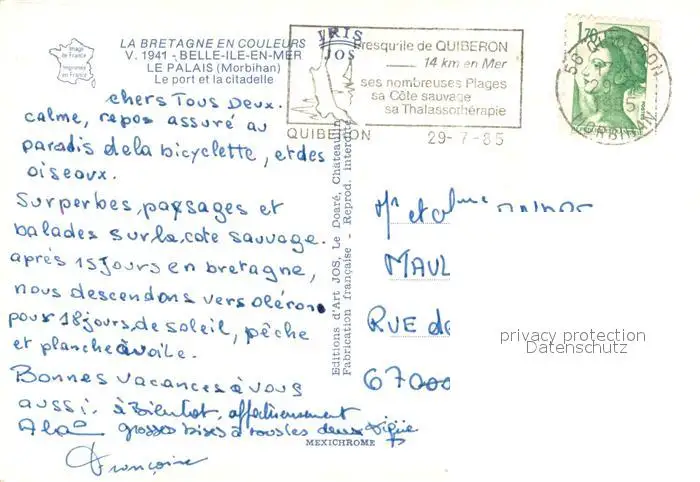 Image de France
Imprimé en France
LA BRETAGNE EN COULEURS
V. 1941 - BELLE-ILE-EN-MER
LE PALAIS (Morbihan)
Le port et la citadelle
IRIS
JOS
Presqu'ile de QUIBERON
14 km en Mer
ses nombreuses Plages
sa Côte sauvage
sa Thalassothérapie
QUIBERON 29-7-85
1,70
56 QUIBERON
MORBIHAN
chers Tous Deux.
calme, repos assuré au
paradis de la bicyclette, et des
oiseaux.
Surperbes, paysages et
balades sur la cote sauvage.
après 15 jours en bretagne,
nous descendons vers oléron
pour 18 jours de soleil, pêche
et planche à voile.
Bonnes vacances à vous
aussi. à Bientot, affectueusement
grosses bises à tous les deux
Françoise
Editions d'Art JOS, Le Doaré, Châteaulin
Fabrication française - Reprod. interdite
MEXICHROME
Mr et Mme
MAUL
RUE de
67000
privacy protection
Datenschutz